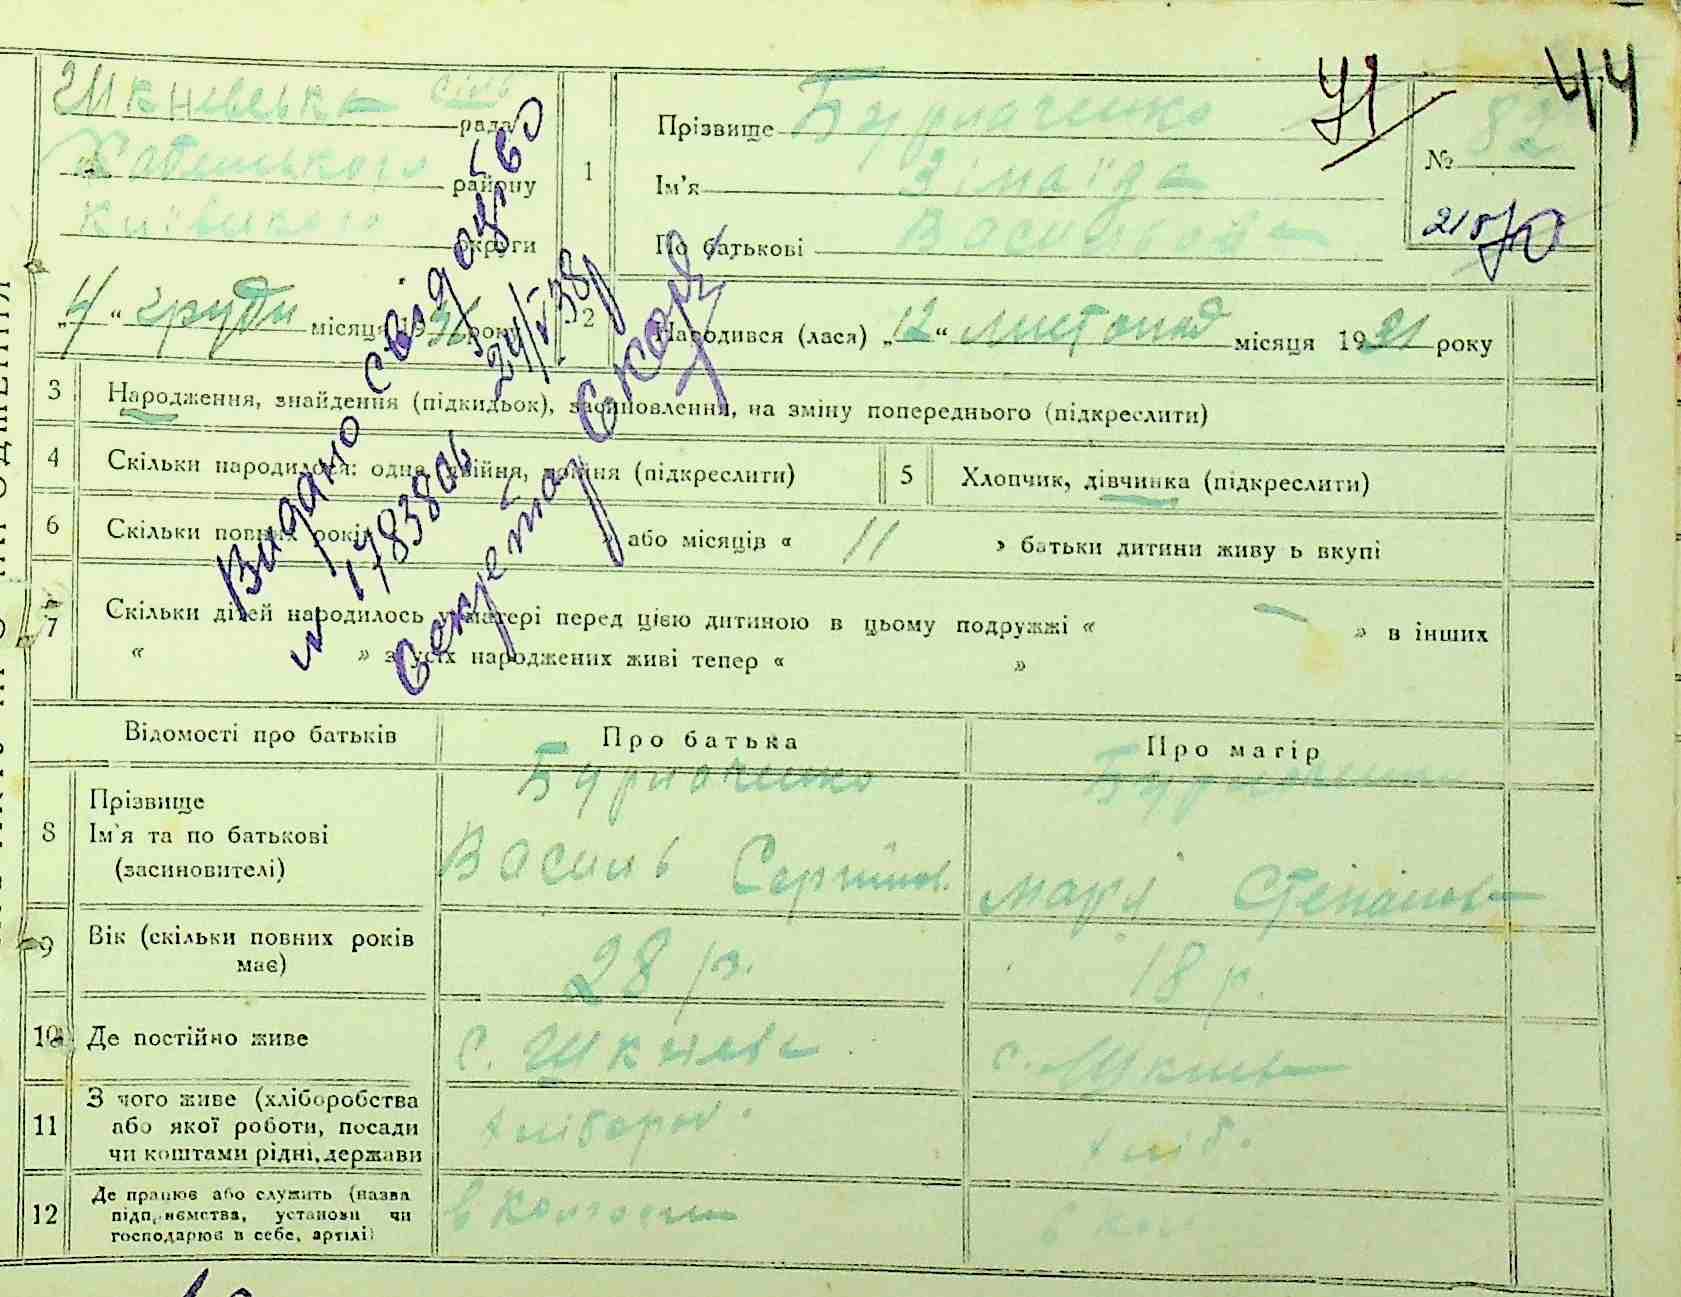 71 44
Шкнівська сіль рада
Хабенського району
Київського округи
1
Прізвище Бурначенко
Ім'я Зінаїда
По батькові Василівна
№ 82
„4“ грудн місяця 193 року
2
Народився (лася) „12“ листопад місяця 1931 року
3 Народження, знайдення (підкидьок), засиновлення, на зміну попереднього (підкреслити)
4 Скільки народилося: одна, двійня, тройня (підкреслити)
5 Хлопчик, дівчинка (підкреслити)
6 Скільки повних років або місяців « 11 » батьки дитини живу ь вкупі
7 Скільки дітей народилось у матері перед цією дитиною в цьому подружжі « — » в інших
« » з усіх народжених живі тепер « »
Видано свідоцтво
№ 178380 24/V 38р
Секретар
Відомості про батьків Про батька Про матір
8 Прізвище
Ім'я та по батькові
(засиновителі)
Бурначенко
Василь Сергійов.
Бурначенко
Марі Степанівна
9 Вік (скільки повних років
має)
28 р. 18 р.
10 Де постійно живе с. Шкнева с. Шкнева
11 З чого живе (хліборобства
або якої роботи, посади
чи коштами рідні, держави
хлібороб. хліб.
12 Де працює або служить (назва
підприємства, установи чи
господарює в себе, артілі)
в колгоспі в кол